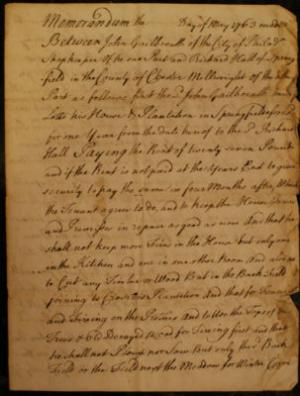 Memorandum the Day of May 1763 made
Between John Gailbreath of the City of Philad.
Shopkeeper of the one Part and Richard Hall of Spring
field in the County of Chester Millwright of the other
Part as follows first the sd John Gailbreath
Letts his House & Plantation in Springfield
for one Year from the date hereof to the sd Richard
Hall Paying the Rent of twenty seven Pounds
and if the Rent is not paid at the Years End to give
security to pay the same in four Months after, Which
the Tenant agrees to do, and to keep the House
and in repair as good as now And that he
shall not keep more Fires in the House but only one
in the Kitchen and one in one other Room And also not
to Cut any Timber or Wood But in the Back Field
joining to Plantation And that for
and Fireing on the Premises And to Use the Tops of the
Trees & Old Decayed Wood for Fireing first and that
he shall not Plough nor Sow But only the Back
Field or the Field next the Meadow for Winter